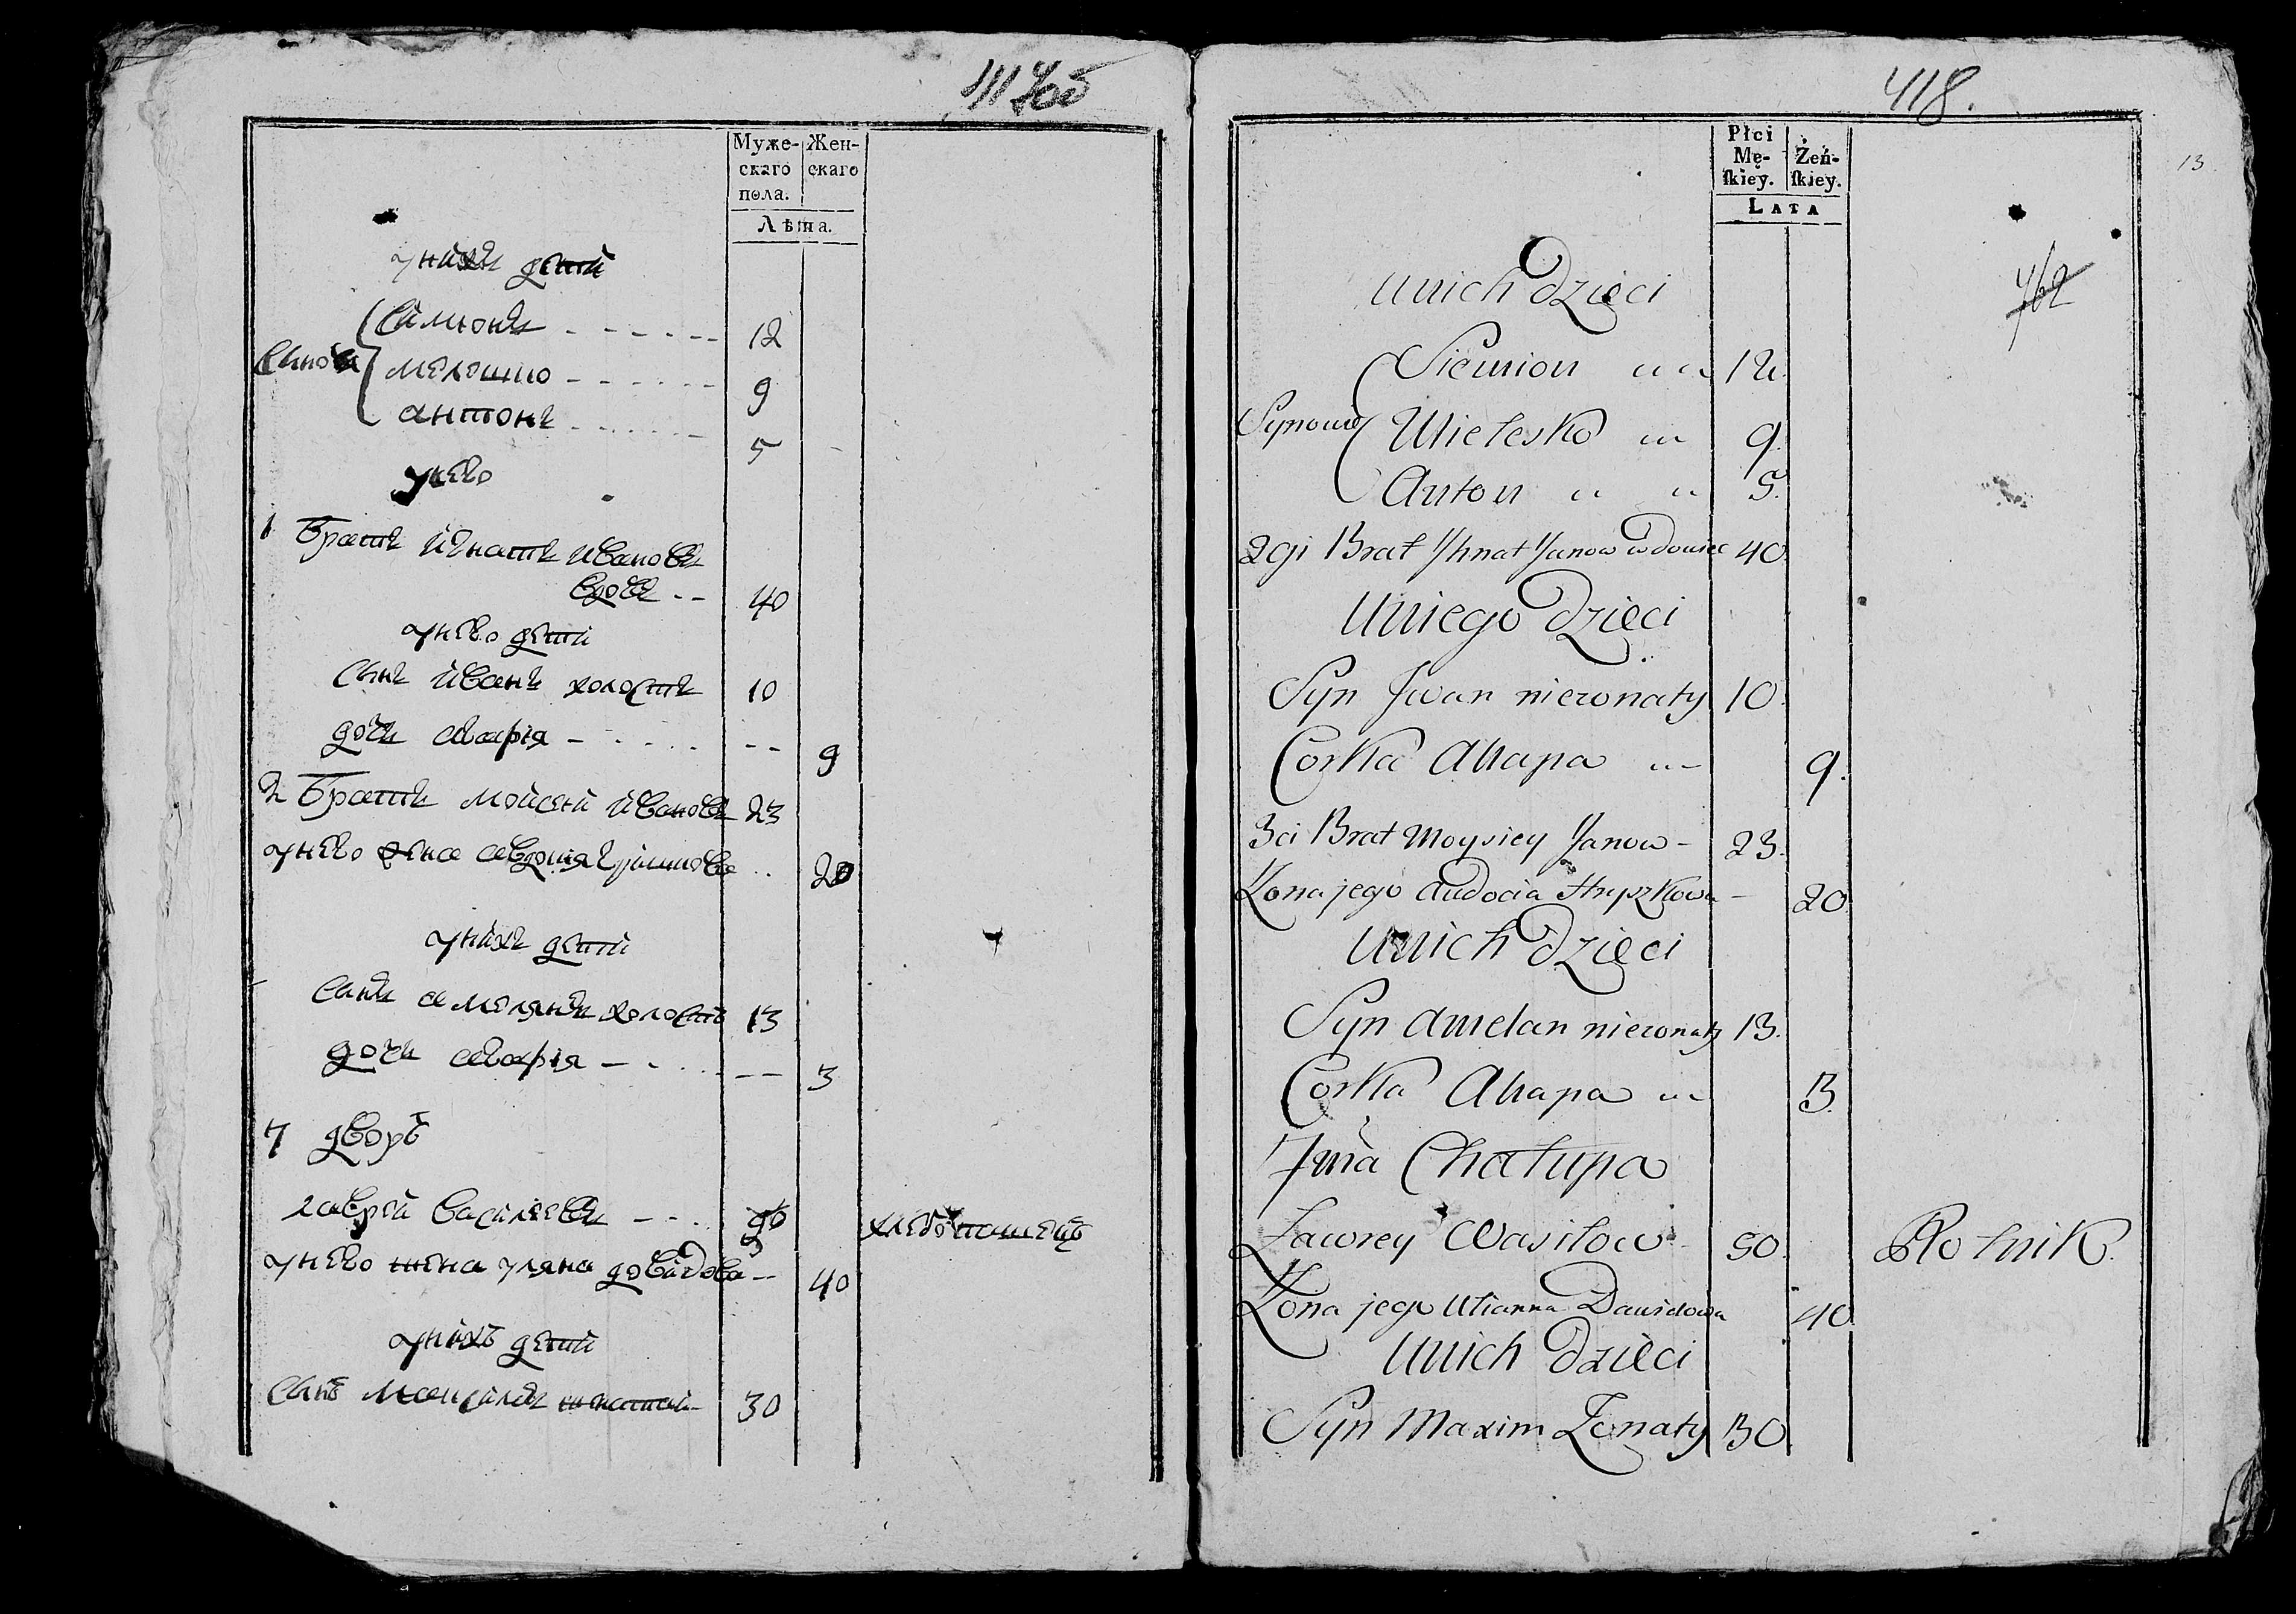 Муже-
скаго
пола.
Жен-
скаго
Лѣта.
унихъ дети
Симионъ 12
Сынови
мелешко 9
антонъ 5
унего
1 Братъ игнатъ ивановъ
вдовъ 40
унего дети
Сынъ иванъ холостъ 10
дочь агафія 9
2 Братъ мойсей ивановъ 23
унего жена авдотія гришкова 20
унихъ дети
Сынъ амелянъ холостъ 13
дочь агафія 3
7 дворъ
лаврей василевъ 50 хлебопашецъ
унего жена уляна давидова 40
унихъ дети
Сынъ Максимъ женатый 30
418.
13
Płci
Mę-
skiey.
Żeń-
skiey.
LATA
762
unich dzieci
Siemion 12
Synowie
Mielesko 9.
Anton 5.
2gi Brat Yhnat Janow wdowiec 40
Uniego dzieci
Syn Jwan niezonaty 10
Corka Ahapa 9.
3ci Brat Moysiey Janow 23.
Zona jego Audocia Hryszkowa 20
Unich dzieci
Syn Amelan niezonaty 13.
Corka Ahapa 3.
7ma Chałupa
Ławrey Wasilow 50 Rolnik.
Zona jego Ulianna Dawidowa 40
Unich dzieci
Syn Maxim Zonaty 30